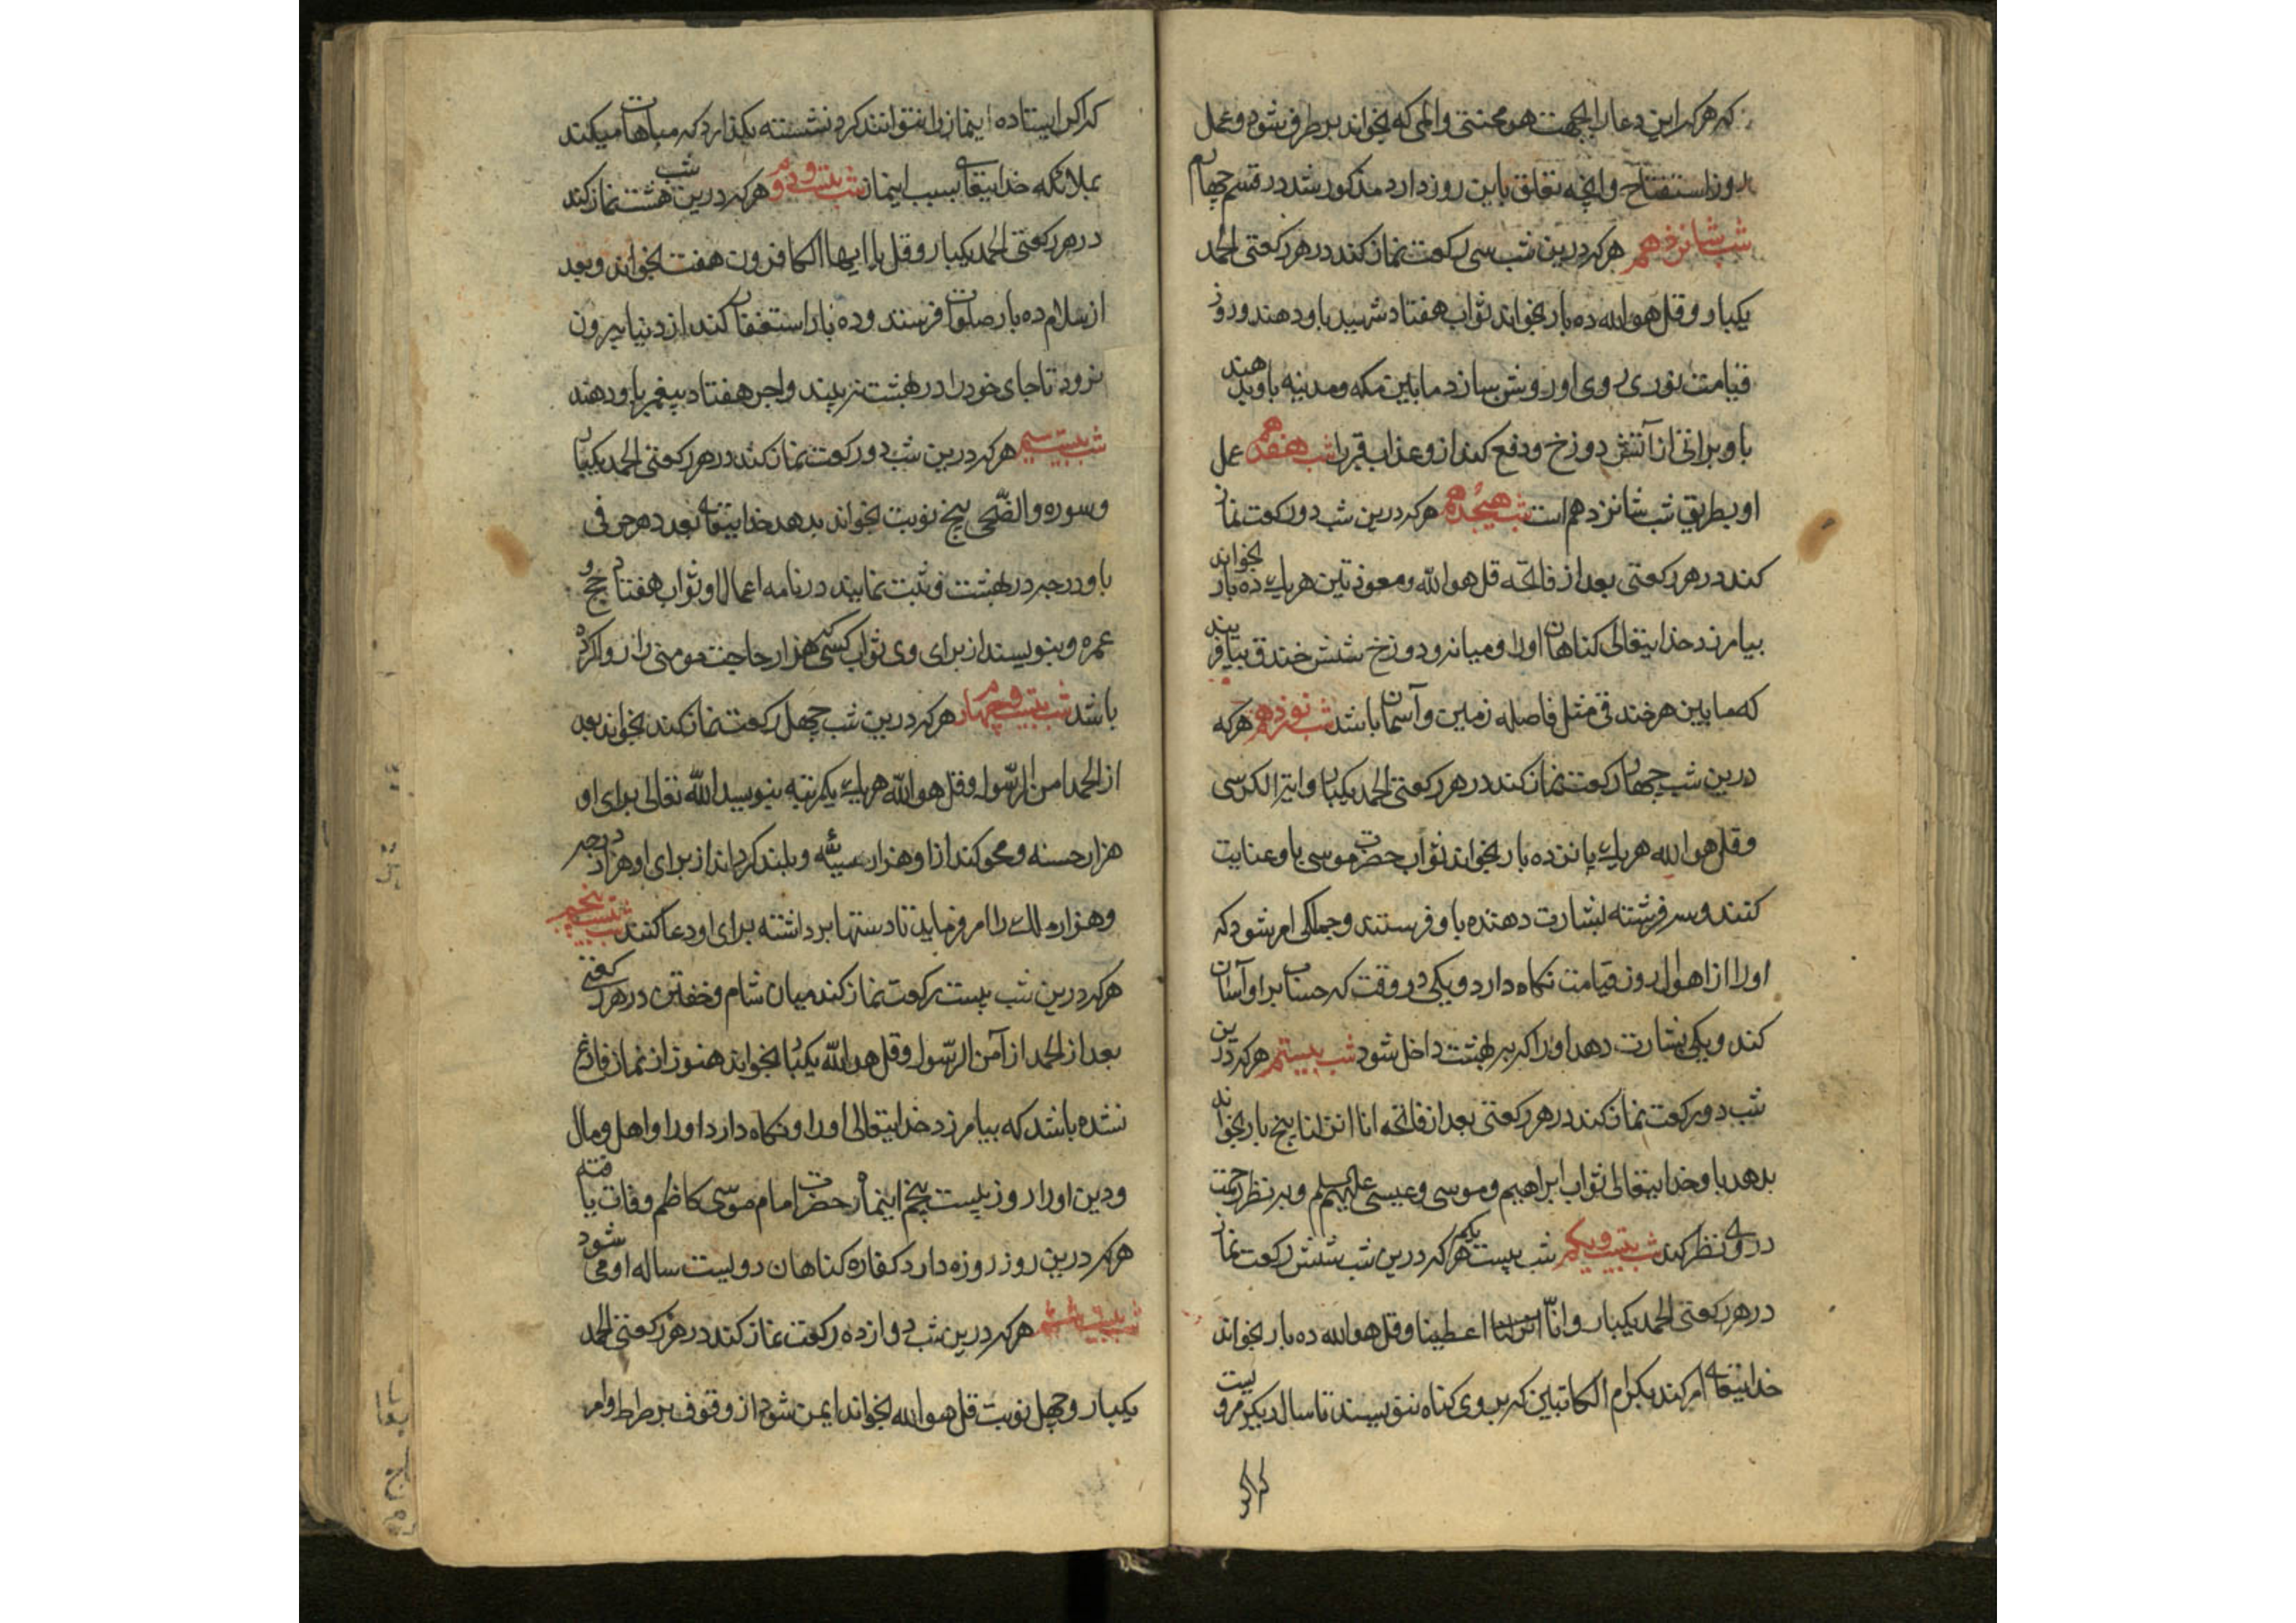 که هرکه این دعا را بجهت هر محنتی و المی که بخواند برطرف شود و عمل
روز استفتاح و انچه تعلق باین روز دارد مذکور شد در قسم چهارم
شب شانزدهم هرکه درین شب سی رکعت نماز کند در هر رکعتی الحمد
یکبار و قل هو الله ده بار بخواند ثواب هفتاد شهید باو دهند و روز
قیامت نوری روی او روشن سازد مابین مکه و مدینه باو بدهند
باو براتی از آتش دوزخ و دفع کند ازو عذاب قبر را شب هفدهم عمل
او بطریق شب شانزدهم است شب هیجدهم هرکه درین شب دو رکعت نماز
کند در هر رکعتی بعد از فاتحه قل هو الله و معوذتین هریک ده بار بخواند
بیامرزد خدایتعالی کناهان اورا و میان او و دوزخ شش خندق بیافریند
که مابین هر خندقی مثل فاصله زمین و آسمان باشد شب نوزدهم هرکه
درین شب چهار رکعت نماز کند در هر رکعتی الحمد یکبار و ایة الکرسی
و قل هو الله هریک پانزده بار بخواند ثواب حضرت موسی باو عنایت
کنند و سه فرشته بشارت دهنده باو فرستند و جملکی امر شود که
اورا از اهوال روز قیامت نکاه دارد و یکی در وقت که حساب بر او آسان
کند و یکی بشارت دهد اورا که ببهشت داخل شود شب بیستم هرکه درین
شب دو رکعت نماز کند در هر رکعتی بعد از فاتحه انا انزلنا پنج بار بخواند
بدهد باو خدایتعالی ثواب ابراهیم و موسی و عیسی علیهم السلم و بنظر رحمت
در وی نظر کند شب بیست و یکم شب بیست یکم هرکه درین شب شش رکعت نماز
در هر رکعتی الحمد یکبار و انّا انزلنا اعطینا و قل هو الله ده بار بخواند
خدایتعالی امر کند بکرام الکاتبین که بر وی کناه ننویسند تا سال دیکر مرویست
که اکر
که اکر ایستاده اینماز را نتوانند کرد نشسته بکذارد که مباهات میکند
بملائکه خدایتعالی بسبب اینماز شب بیست و دوم هرکه درین شب هشت نماز کند
در هر رکعتی الحمد یکبار و قل یا ایها الکافرون هفت بخواند و بعد
از سلام ده بار صلوات فرستد و ده بار استغفار کند از دنیا بیرون
نرود تا جای خود را در بهشت نبیند و اجر هفتاد پیغمبر باو دهند
شب بیست سیم هرکه درین شب دو رکعت نماز کند در هر رکعتی الحمد یکبار
و سوره والضحی پنج نوبت بخواند بدهد خدایتعالی بعدد هر حرفی
باو درجه در بهشت و ثبت نمایند در نامه اعمال او ثواب هفتاد حج و
عمره و بنویسند از برای وی ثواب کسی که هزار حاجت مومنی را روا کرده
باشد شب بیست و چهارم هرکه درین شب چهل رکعت نماز کند بخواند بعد
از الحمد امن الرسول و قل هو الله هریک یکمرتبه بنویسد الله تعالی برای او
هزار حسنه و محو کند ازاو هزار سیئه و بلند کرداند از برای او هزار درجه
و هزار ملک را امر فرماید تا دستها برداشته برای او دعا کنند شب بیست پنجم
هرکه درین شب بیست رکعت نماز کند میان شام و خفتن در هر رکعتی
بعد از الحمد از آمن الرسول و قل هو الله یکبار بخواند هنوز از نماز فارغ
نشده باشد که بیامرزد خدایتعالی اورا و نکاه دارد اورا و اهل و مال
و دین اورا روز بیست پنجم اینماه حضرت امام موسی کاظم وفات یافته
هرکه درین روز روزه دارد کفاره کناهان دویست ساله او می شود
شب بیست ششم هرکه درین شب دوازده رکعت نماز کند در هر رکعتی الحمد
یکبار و چهل نوبت قل هو الله بخواند ایمن شود از وقوف بر صراط و امر